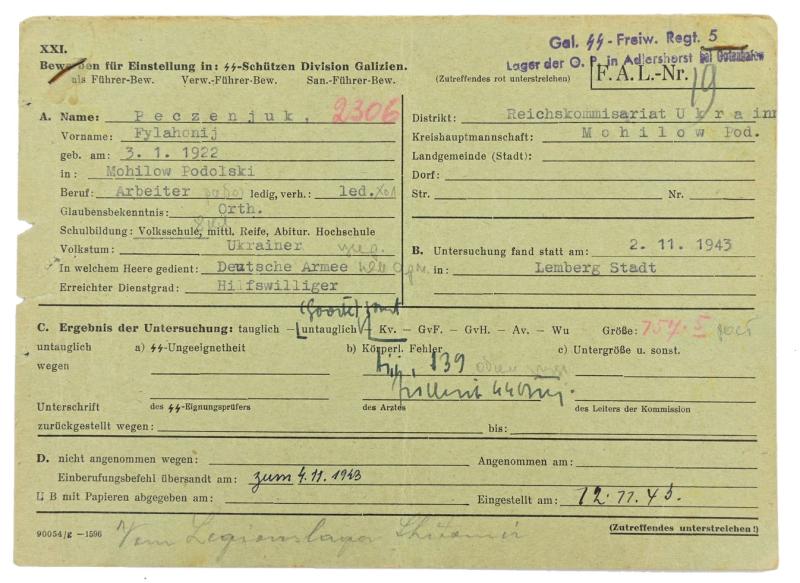 XXI.
Gal. ϟϟ - Freiw. Regt. 5
Bewerben für Einstellung in: ϟϟ-Schützen Division Galizien.
Lager der O. P. in Adlershorst bei Gotenhafen
als Führer-Bew. Verw.-Führer-Bew. San.-Führer-Bew. (Zutreffendes rot unterstreichen)
F. A. L.-Nr. 19
A. Name: Peczenjuk, 2306
Vorname: Fylahonij
geb. am: 3. 1. 1922
in: Mohilow Podolski
Beruf: Arbeiter ledig, verh.: led.
Glaubensbekenntnis: Orth.
Schulbildung: Volksschule, mittl. Reife, Abitur. Hochschule
Volkstum: Ukrainer
In welchem Heere gedient: Deutsche Armee
Erreichter Dienstgrad: Hilfswilliger
Distrikt: Reichskommisariat Ukrain
Kreishauptmannschaft: Mohilow Pod.
Landgemeinde (Stadt):
Dorf:
Str. Nr.
B. Untersuchung fand statt am: 2. 11. 1943
in: Lemberg Stadt
C. Ergebnis der Untersuchung: tauglich – untauglich Kv. – GvF. – GvH. – Av. – Wu Größe: 154.5
untauglich a) ϟϟ-Ungeeignetheit b) Körperl. Fehler c) Untergröße u. sonst.
wegen
839
Unterschrift des ϟϟ-Eignungsprüfers des Arztes des Leiters der Kommission
zurückgestellt wegen: bis:
D. nicht angenommen wegen: Angenommen am:
Einberufungsbefehl übersandt am: zum 4.11.1943
U B mit Papieren abgegeben am: Eingestellt am: 12.11.43.
90054/g –1596 (Zutreffendes unterstreichen!)
Vom Legionslager Shitomir